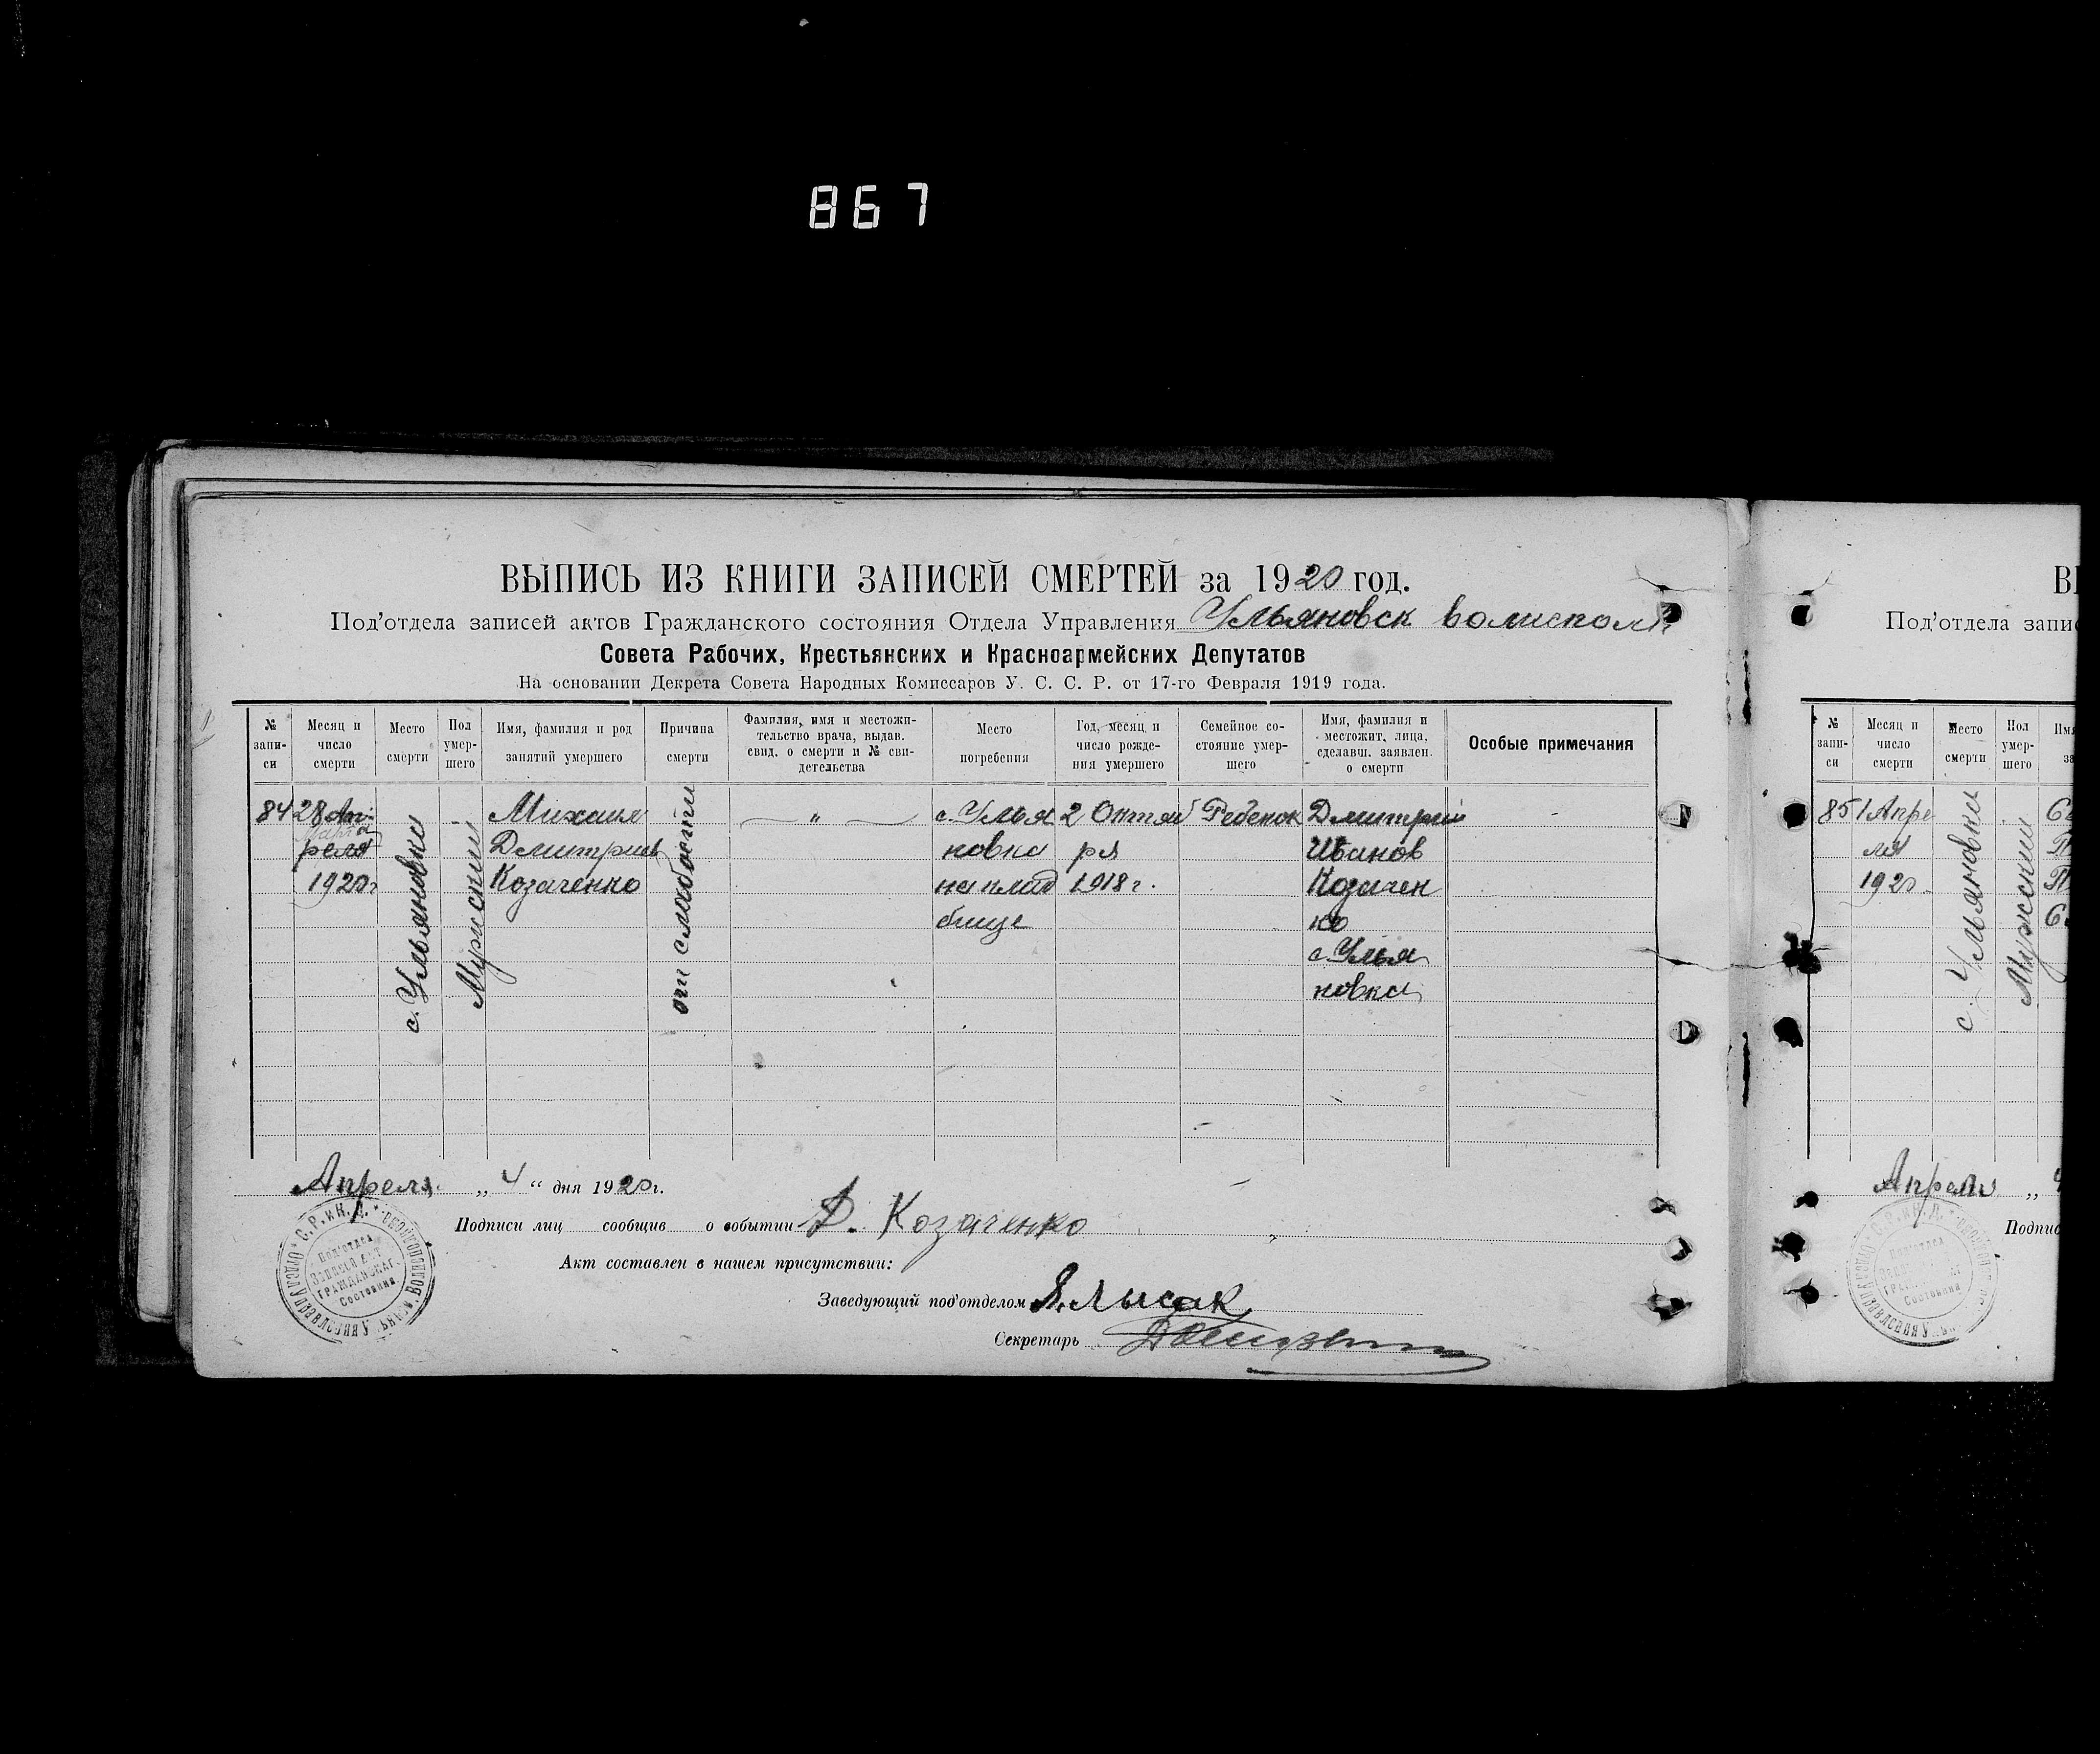 867
ВЫПИСЬ ИЗ КНИГИ ЗАПИСЕЙ СМЕРТЕЙ за 1920 год.
Под'отдела записей актов Гражданского состояния Отдела Управления Ульяновск волисполк
Совета Рабочих, Крестьянских и Красноармейских Депутатов
На основании Декрета Совета Народных Комиссаров У. С. С. Р. от 17-го Февраля 1919 года.
№ запи-си
Месяц и число смерти
Место смерти
Пол умер-шего
Имя, фамилия и род занятий умершего
Причина смерти
Фамилия, имя и местожи-тельство врача, выдав. свид. о смерти и № сви-детельства
Место погребения
Год, месяц и число рожде-ния умершего
Семейное со-стояние умер-шего
Имя, фамилия и местожит. лица, сделавш. заявлен. о смерти
Особые примечания
84
28 Ап-
марта
реля
1920 г
с. Ульяновки
Мужский
Михаил
Дмитриев
Козаченко
от слабости
„
с. Улья
новка
на клад
бище
2 Октяб
ря
1918 г.
Ребенок
Дмитрий
Иванов
Козачен
ко
с. Улья
новка
Апреля „ 4 “ дня 1920 г.
Подписи лиц сообщив о событии Д. Козаченко
Акт составлен в нашем присутствии:
Заведующий под'отделом Я. Лысак
Секретарь
Под'отдела
Записи Акт
Гражданскаг.
Состояния
В
Под'отдела запис
№ запи-си
Месяц и число смерти
Место смерти
Пол умер-шего
85
1 Апре
ля
1920
с. Ульяновки
Мужский
Апреля „ 4
Подпис